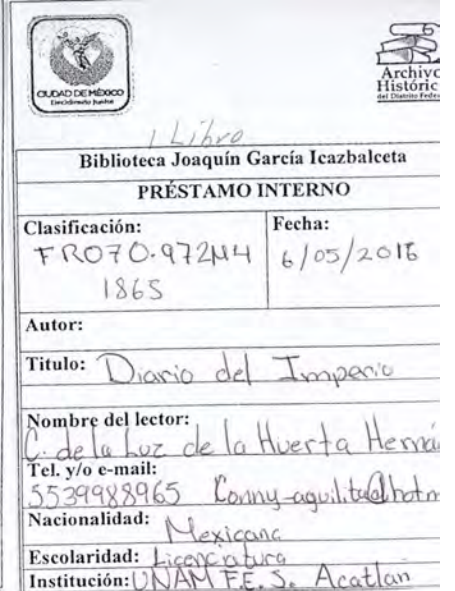 CIUDAD DE MÉXICO
Decidiendo Juntos
Archivo
Históric
del Distrito Feder
1 Libro
Biblioteca Joaquín García Icazbalceta
PRÉSTAMO INTERNO
Clasificación: FR070.972M4 1865
Fecha: 6/05/2016
Autor:
Titulo: Diario del Imperio
Nombre del lector:
C. de la Luz de la Huerta Herná
Tel. y/o e-mail:
5539988965 Conny-aguilita@hotm
Nacionalidad: Mexicana
Escolaridad: Licenciatura
Institución: UNAM F.E.S. Acatlan